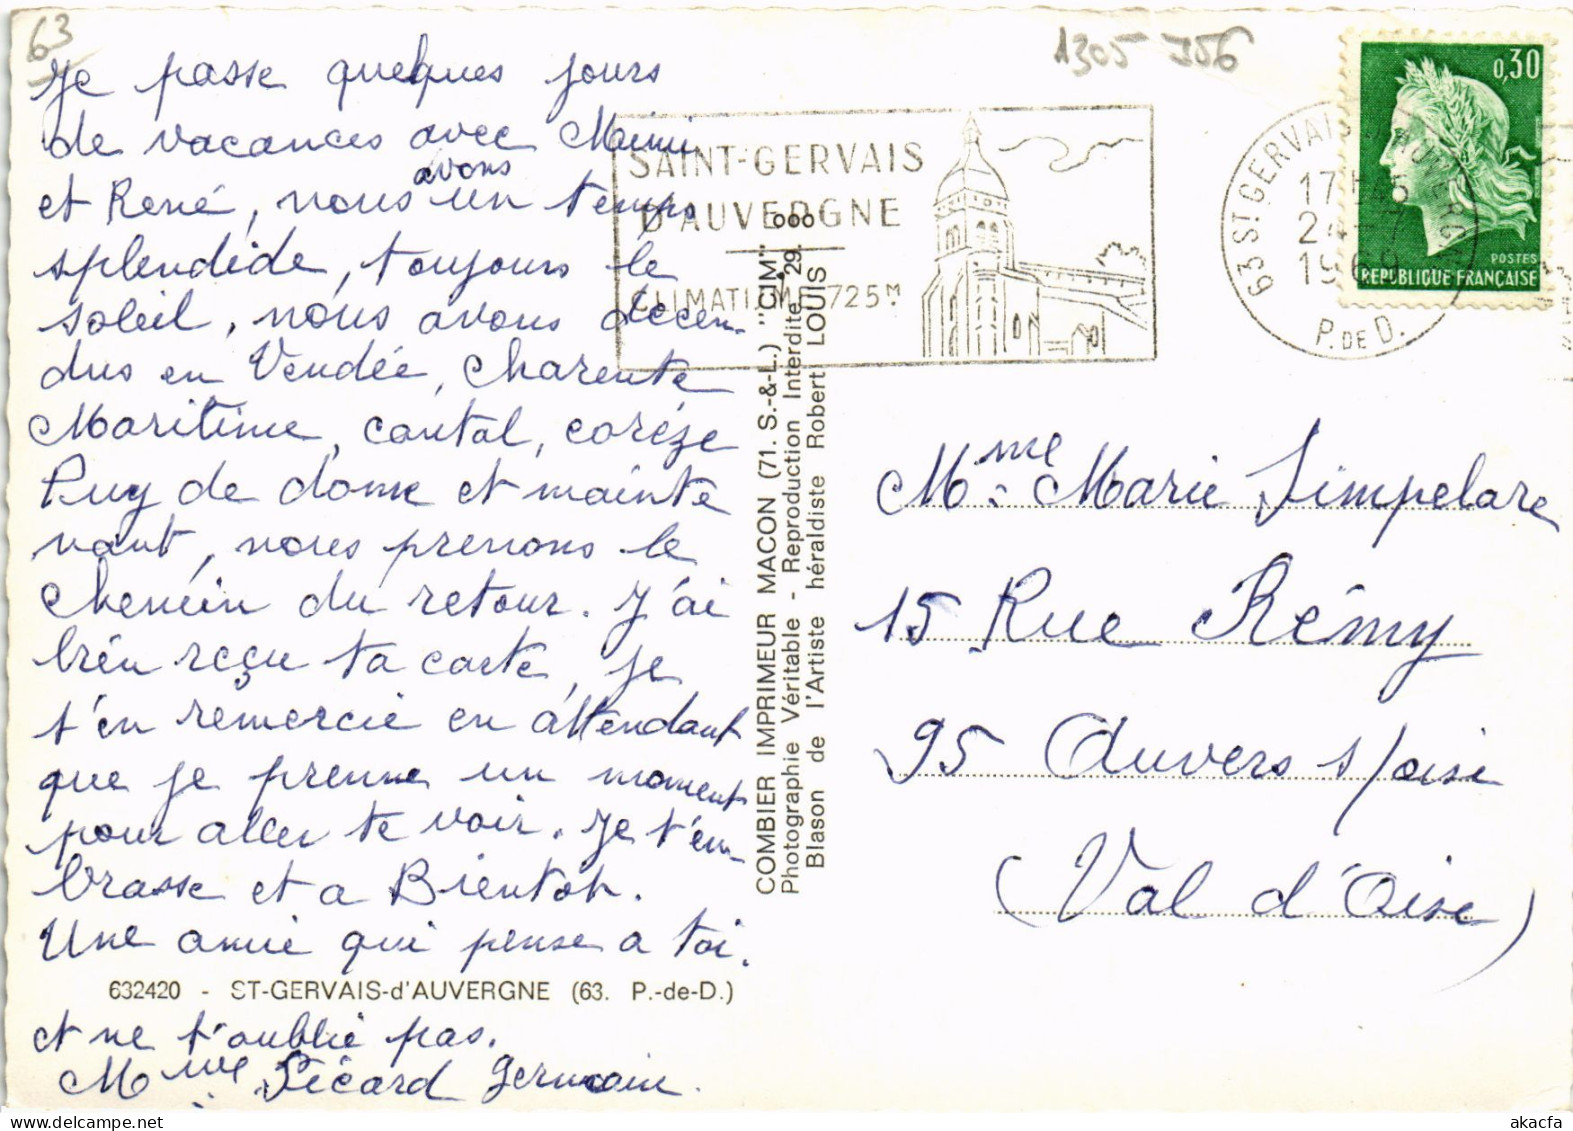 63
Je passe quelques jours
de vacances avec Mimi
et René, nous avons un temps
splendide, toujours le
soleil, nous avons décen-
dus en Vendée, Charente
Maritime, cantal, corèze
Puy de dome et mainte
nant, nous prenons le
chemin du retour. J'ai
bien reçu ta carte, je
t'en remercie en attendant
que je prenne un moment
pour aller te voir. Je t'em-
brasse et a Bientot.
Une amie qui pense a toi.
632420 - ST-GERVAIS-d'AUVERGNE (63. P.-de-D.)
et ne t'oublie pas.
Mme Picard Germaine.
COMBIER IMPRIMEUR MACON (71. S.-&-L.) "CIM".
Photographie Véritable - Reproduction Interdite 29.
Blason de l'Artiste héraldiste Robert LOUIS
SAINT-GERVAIS
D'AUVERGNE
CLIMATISME 725M.
1305 J56
63 ST GERVAIS D'AUVERGNE
17H45
24-7
1969
P. DE D.
0,30
POSTES
REPUBLIQUE FRANÇAISE
Mme Marie Simpelare
15 Rue Rémy
95 Auvers s/oise
(Val d'Oise)
akacfa
delcampe.net